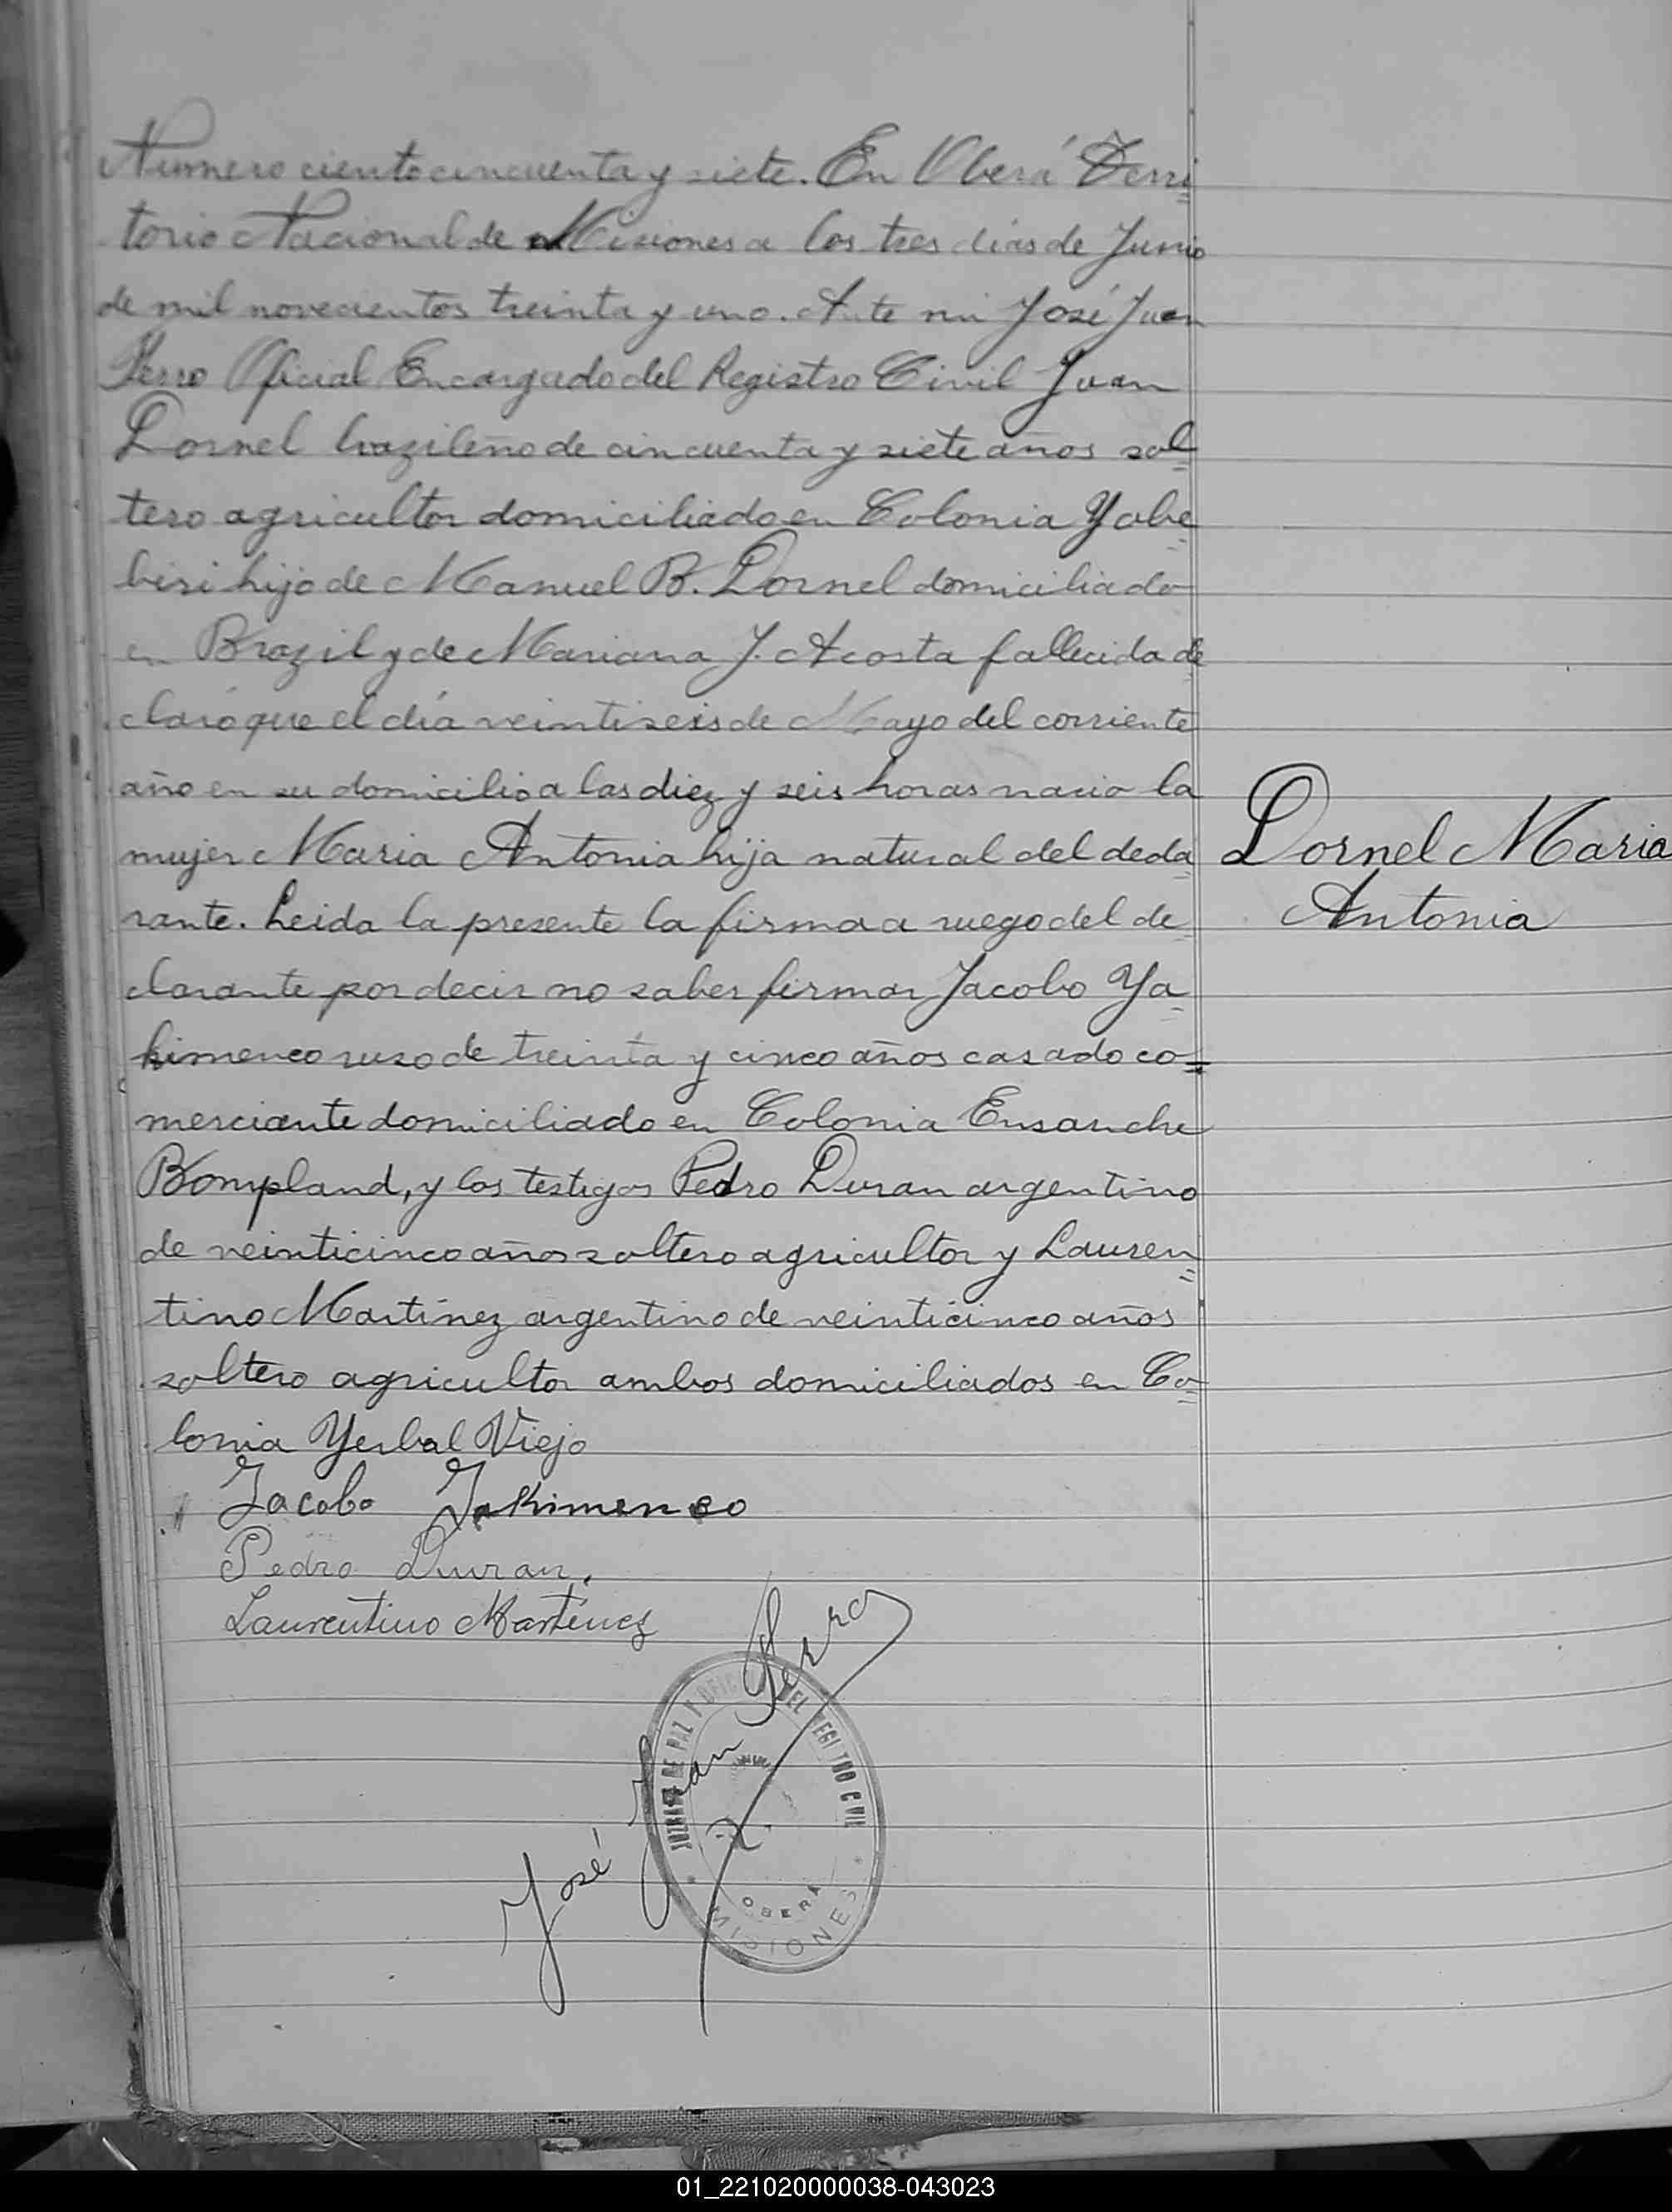 Numero ciento cincuenta y siete. En Oberá Terri=
torio Nacional de Misiones a los tres días de Junio
de mil novecientos treinta y uno. Ante mi José Juan
Perro Oficial Encargado del Registro Civil Juan
Dornel brazileño de cincuenta y siete años sol=
tero agricultor domiciliado en Colonia Yabe=
biri hijo de Manuel B. Dornel domiciliado
en Brazil y de Mariana J. Acosta fallecida de
claró que el día veintiseis de Mayo del corriente
año en su domicilio a las diez y seis horas nacio la
mujer Maria Antonia hija natural del decla=
rante. Leida la presente la firma a ruego del de=
clarante por decir no saber firmar Jacobo Ya=
kimenco ruso de treinta y cinco años casado co=
merciante domiciliado en Colonia Ensanche
Bompland, y los testigos Pedro Duran argentino
de veinticinco años soltero agricultor y Lauren=
tino Martínez argentino de veinticinco años
soltero agricultor ambos domiciliados en Co=
lonia Yerbal Viejo
Dornel Maria
Antonia
Jacobo Jakimenco
Pedro Duran.
Laurentino Martínez
José Juan Perro
JUZGADO DE PAZ Y OFIC DEL REGISTRO CIVIL
OBERA
MISIONES
01_221020000038-043023